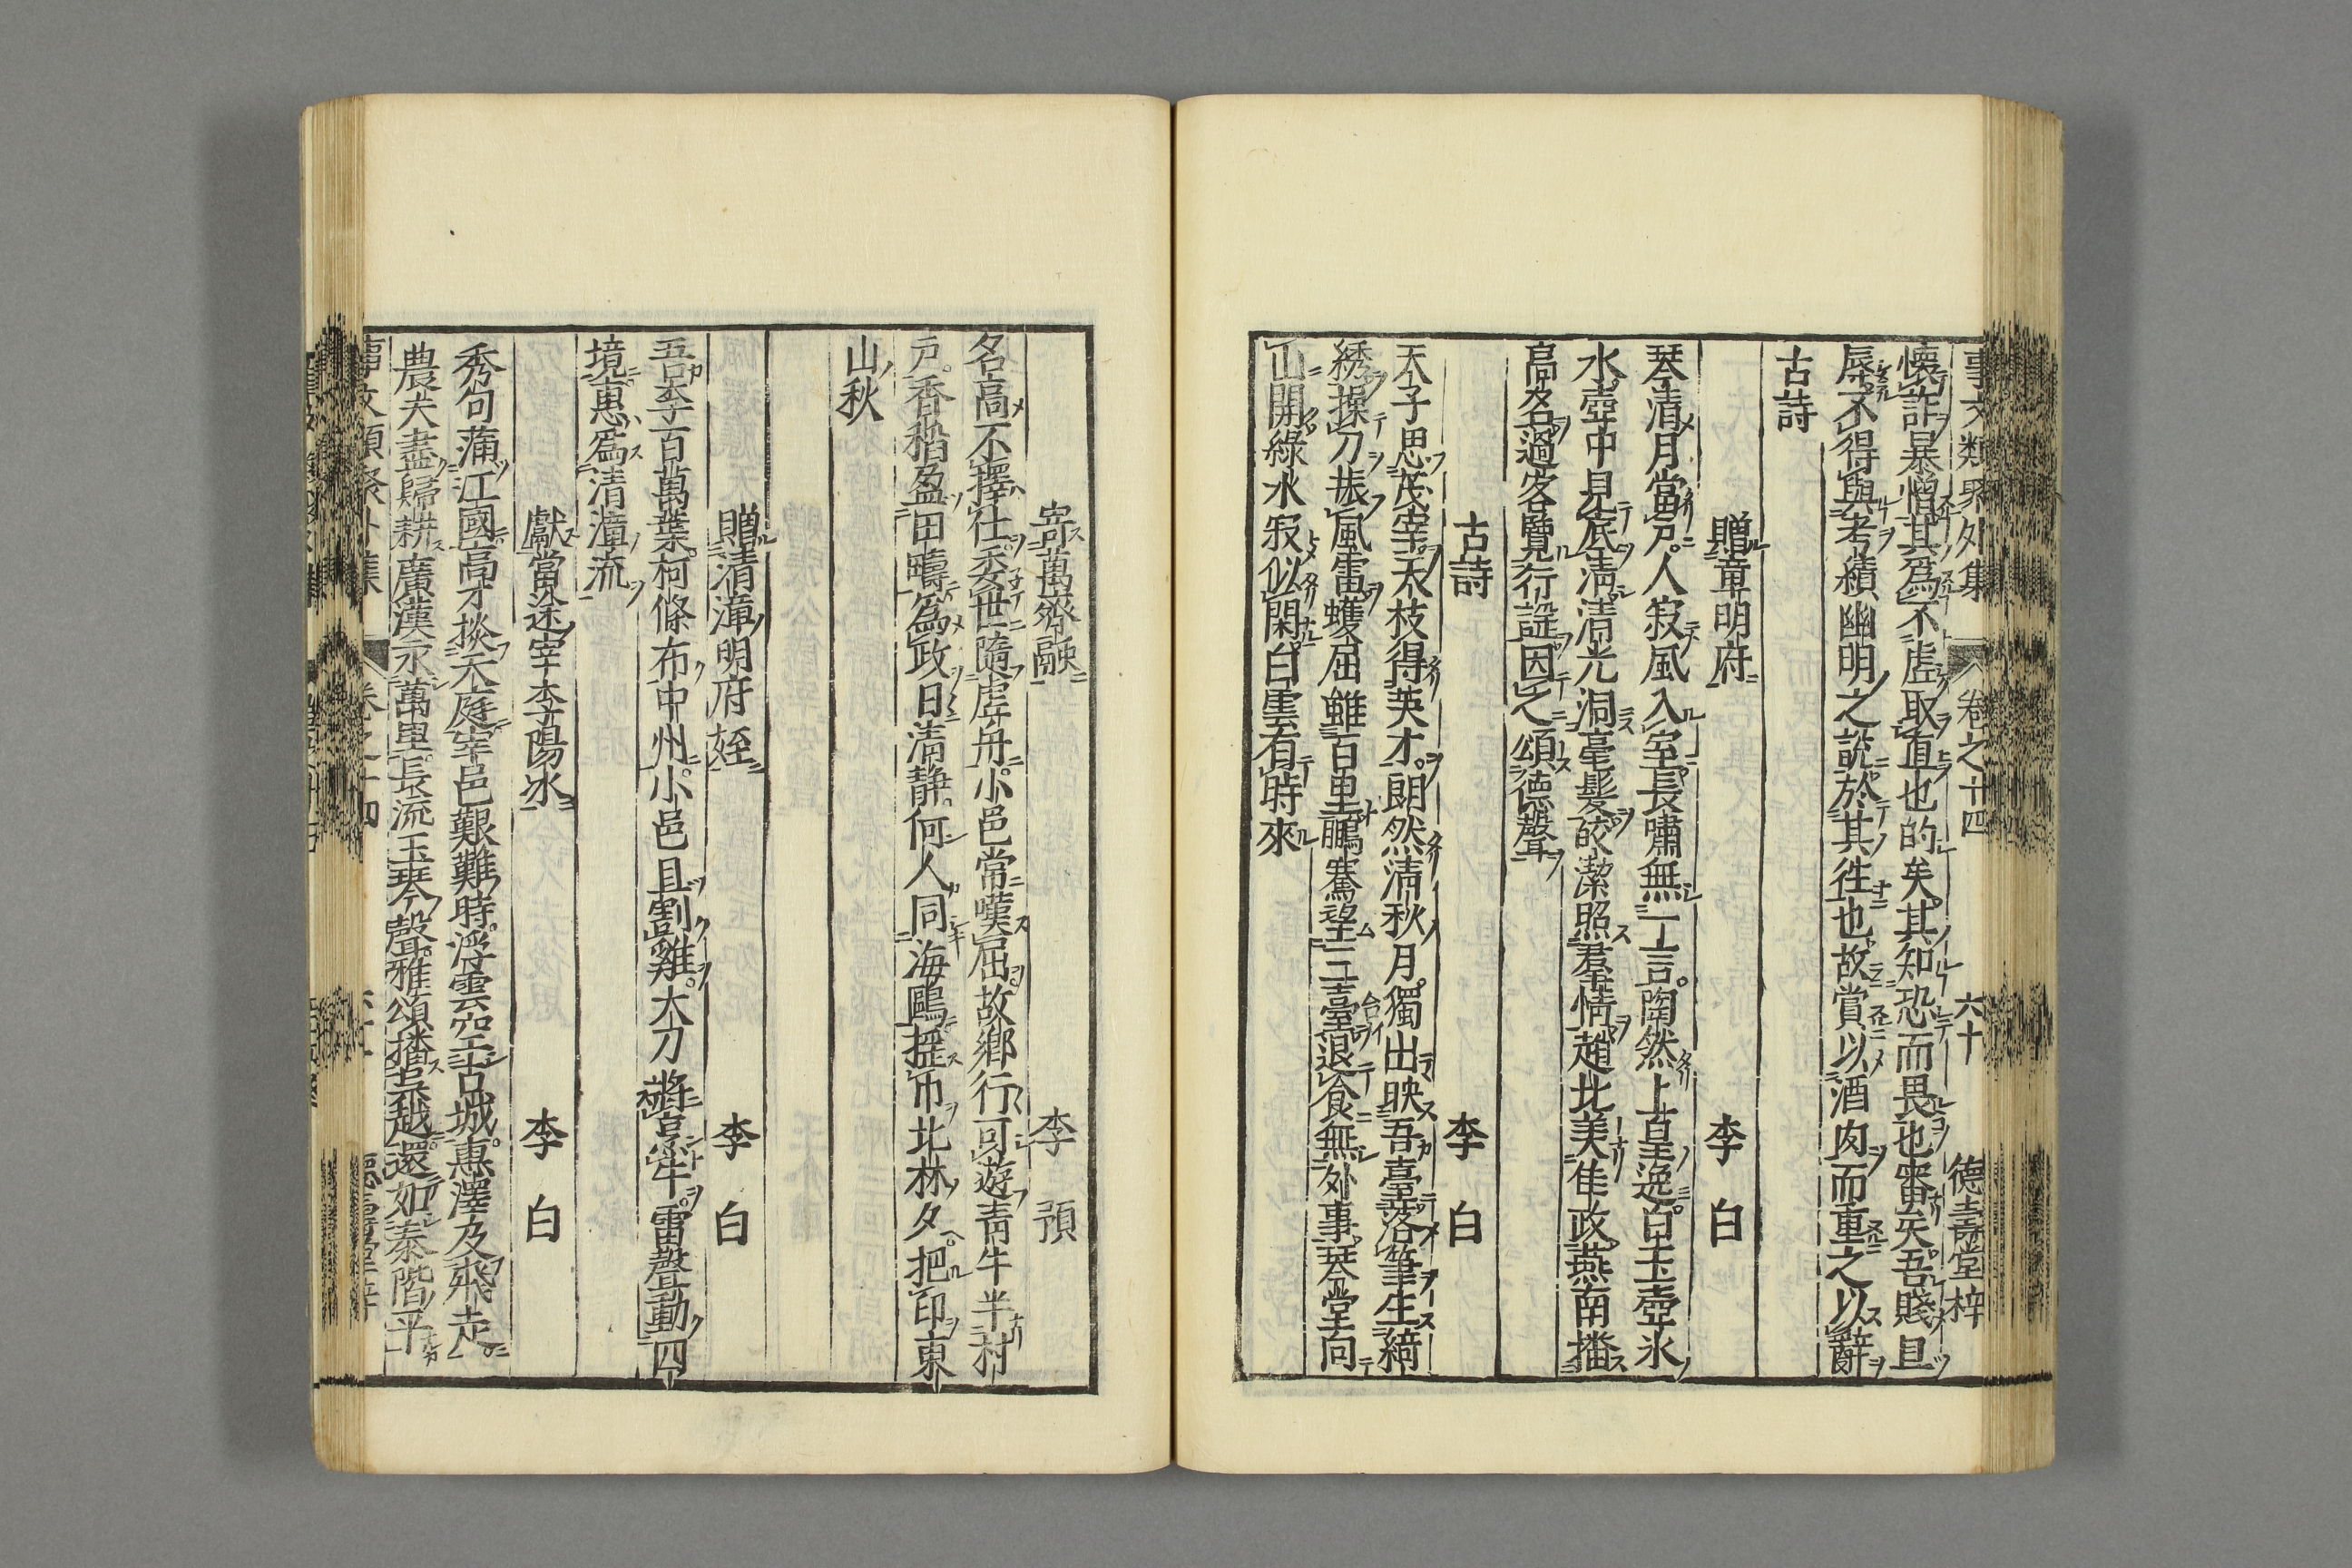 事文類聚外集 卷之十四 六十 德壽堂梓
懷詐暴憎其爲不虛取直也的矣其知恐而畏也審矣吾賤且
辱不得與考績幽明之說於其往也故賞以酒肉而重之以辭
古詩
贈韋明府 李白
琴清月當戶人寂風入室長嘯無一言陶然上皇逸白玉壺氷
水壺中見底清清光洞毫髮皎潔照羣情趙北美佳政燕南播
高名過客覽行謡因之頌德聲
古詩 李白
天子思茂宰天枝得英才朗然清秋月獨出映吾臺落筆生綺
綉操刀振風雷蠖屈雖百里鵬騫望三臺退食無外事琴堂向
山開綠水寂似閑白雲有時來
寄萬齊融 李頎
名高不擇仕委世隨虛舟小邑常嘆屈故鄉行可遊青牛半村
戶香稻盈田疇爲政日清静何人同海鷗摇巾北林夕把印東
山秋
贈清漳明府姪 李白
吾李百萬葉柯條布中州小邑且割雞大刀將烹牛雷聲動四
境惠爲清漳流
獻當塗宰李陽氷 李白
秀句蒲江國高才掞天庭宰邑艱難時浮雲空古城惠澤及飛走
農夫盡歸耕廣漢水萬里長流玉琴聲雅頌播吳越還如泰階平
卷之十四